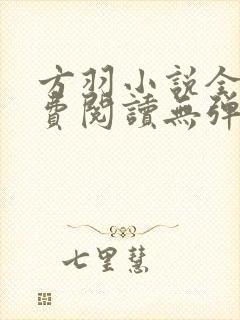 方羽小说全
費閱讀無彈
七里慧